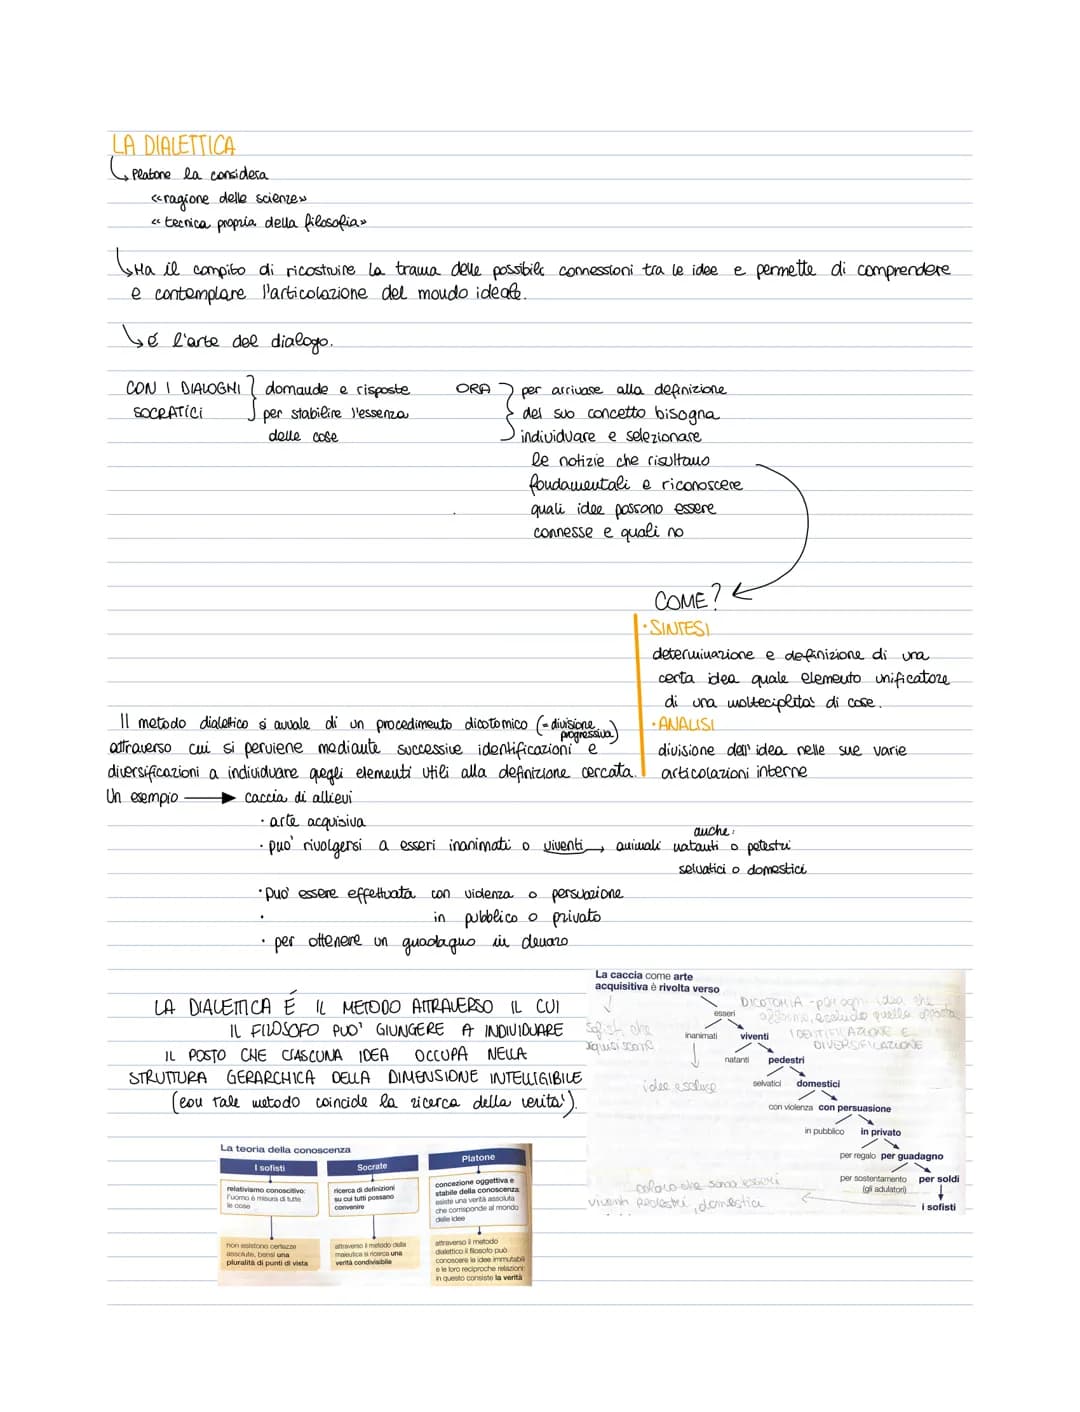 LA DIALETTICA
Platone la considera
«ragione delle scienze»
« tecnica propria della filosofia»
Ha il compito di ricostruire la trama delle possibili connessioni tra le idee e permette di comprendere
e contemplare l'articolazione del mondo ideale.
é l'arte del dialogo.
CON I DIALOGHI
SOCRATICI
domande e risposte
per stabilire l'essenza
delle cose
ORA
per arrivare alla definizione
del suo concetto bisogna
individuare e selezionare
le notizie che risultano
fondamentali e riconoscere
quali idee possono essere
connesse e quali no
COME?
• SINTESI
determinazione e definizione di una
certa idea quale elemento unificatore
di una molteciplita' di cose.
• ANALISI
divisione dell'idea nelle sue varie
articolazioni interne
Il metodo dialettico si avvale di un procedimento dicotomico (= divisione progressiva)
attraverso cui si perviene mediante successive identificazioni e
diversificazioni a individuare quegli elementi utili alla definizione cercata.
Un esempio → caccia di allievi
• arte acquisiva
• puo' rivolgersi a esseri inanimati o viventi → animali natanti o petestri
auche:
selvatici o domestici
• puo' essere effettuata con violenza o persuazione
•
in pubblico o privato
• per ottenere un guadagno in denaro
LA DIALETTICA É IL METODO ATTRAVERSO IL CUI
IL FILOSOFO PUO' GIUNGERE A INDIVIDUARE
IL POSTO CHE CIASCUNA IDEA OCCUPA NELLA
STRUTTURA GERARCHICA DELLA DIMENSIONE INTELLIGIBILE
(con tale metodo coincide la ricerca della verita').
La caccia come arte
acquisitiva è rivolta verso
esseri
inanimati viventi
natanti pedestri
selvatici domestici
con violenza con persuasione
in pubblico in privato
per regalo per guadagno
per sostentamento
(gli adulatori)
per soldi
i sofisti
DICOTOMIA - per ogni idea che
affermo, escludo quella opposta
IDENTIFICAZIONE E
DIVERSIFICAZIONE
Sofisti che
idee escluse
coloro che sono esseri
viventi pedestri, domestici
La teoria della conoscenza
I sofisti
relativismo conoscitivo:
l'uomo è misura di tutte
le cose
non esistono certezze
assolute, bensì una
pluralità di punti di vista
Socrate
ricerca di definizioni
su cui tutti possano
convenire
attraverso il metodo della
maieutica si ricerca una
verità condivisibile
Platone
concezione oggettiva e
stabile della conoscenza:
esiste una verità assoluta
che corrisponde al mondo
delle idee
attraverso il metodo
dialettico il filosofo può
conoscere le idee immutabili
e le loro reciproche relazioni:
in questo consiste la verità